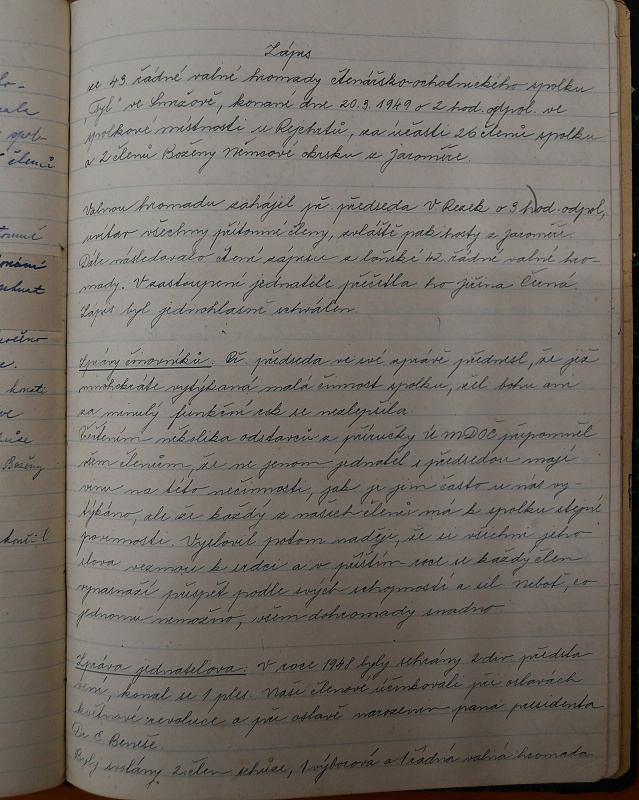 Zápis
ze 43. řádné valné hromady Čtenářsko-ochotnického spolku
"Tyl" ve Smržově, konané dne 20.3.1949 o 2 hod. odpol. ve
spolkové místnosti u Rejchrtů, za účasti 26 členů spolku
a 2 členů Boženy Němcové okrsku z Jaroměře.
Valnou hromadu zahájil př. předseda V. Rezek o 3 hod. odpol,
uvítav všechny přítomné členy, zvláště pak hosty z Jaroměře.
Dále následovalo čtení zápisu z loňské 42. řádné valné hro-
mady. V zastoupení jednatele přečetla ho Jiřina Černá.
Zápis byl jednohlasně schválen.
Zprávy činovníků: Př. předseda ve své zprávě přednesl, že již
mnohokráte vytýkaná malá činnost spolku, žel bohu ani
za minulý funkční rok se nezlepšila.
Čtením několika odstavců z příručky Ú MDOČ připomněl
všem členům, že ne jenom jednatel s předsedou mají
vinu na této nečinnosti, jak je jim často u nás vy-
týkáno, ale že každý z našich členů má k spolku stejné
povinnosti. Vyslovil potom naději, že si všichni jeho
slova vezmou k srdci a v příštím roce se každý člen
vynasnaží přispět podle svých schopností a sil. Neboť, co
jednomu nemožno, všem dohromady snadno.
Zpráva jednatelova: V roce 1948 byly sehrány 2 div. předsta-
vení, konal se 1 ples. Naši členové účinkovali při oslavách
květnové revoluce a při oslavě narozenin pana presidenta
Dr. E. Beneše.
Byly svolány 2 člen. schůze, 1 výborová a 1 řádná valná hromada